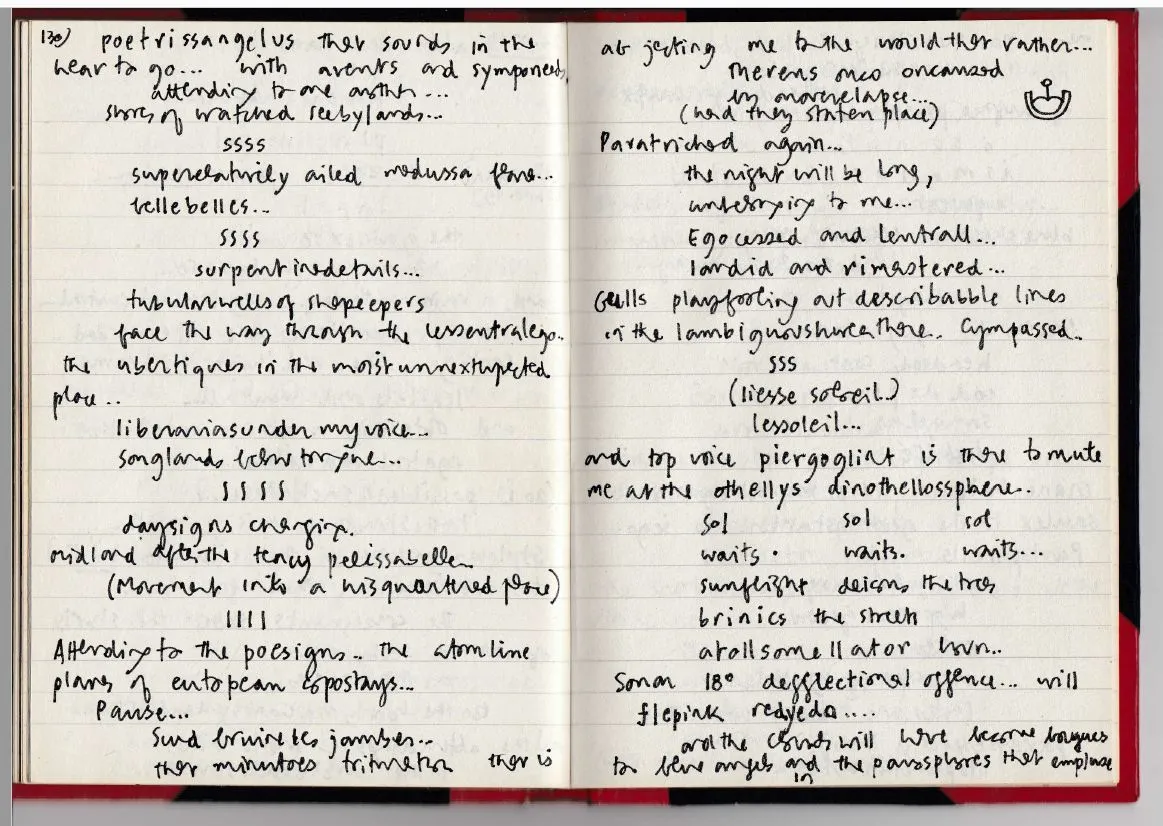 130) poetrissangelus that sounds in the
near to go... with avents and symponeeds,
attending to one another...
shores of watched seebylands...
ssss
superelatively ailed medussa flore...
bellebelles...
ssss
surpentinedetails...
tubularwells of shepeepers
face the way through the lessentralego..
the ubertiques in the moist unnextupected
place..
liberariasundermyvoice...
songlands below tongue...
ssss
daysigns changing.
midland after the tency pelissabelle..
(Movement into a misquartered place)
llll
Attending to the poesigns.. the atomline
planes of eutopean
Pause...
jambes...
that minutoes trituration ther is
abjecting me to the would that rather...
therens onco oncanced
by morerelapse...
(had they staten place)
Paratriched again...
the night will be long,
to me...
Egocessed and lentrall...
lardid and rimastered...
Gulls playfooling out describabble lines
in the there.. Cympassed..
sss
(liesse soleil)
lessoleil...
and top voice piergoglint is there to mute
me at the othellys dinothellosphere..
sol sol sol
waits. waits. waits...
sunflight deigns the trees
brinics the streets
atollsomellator
Sonan 18° degglectional offence... will
flepink redyeda....
and the clouds will have become
to blue angels and in the parasphores that emplause